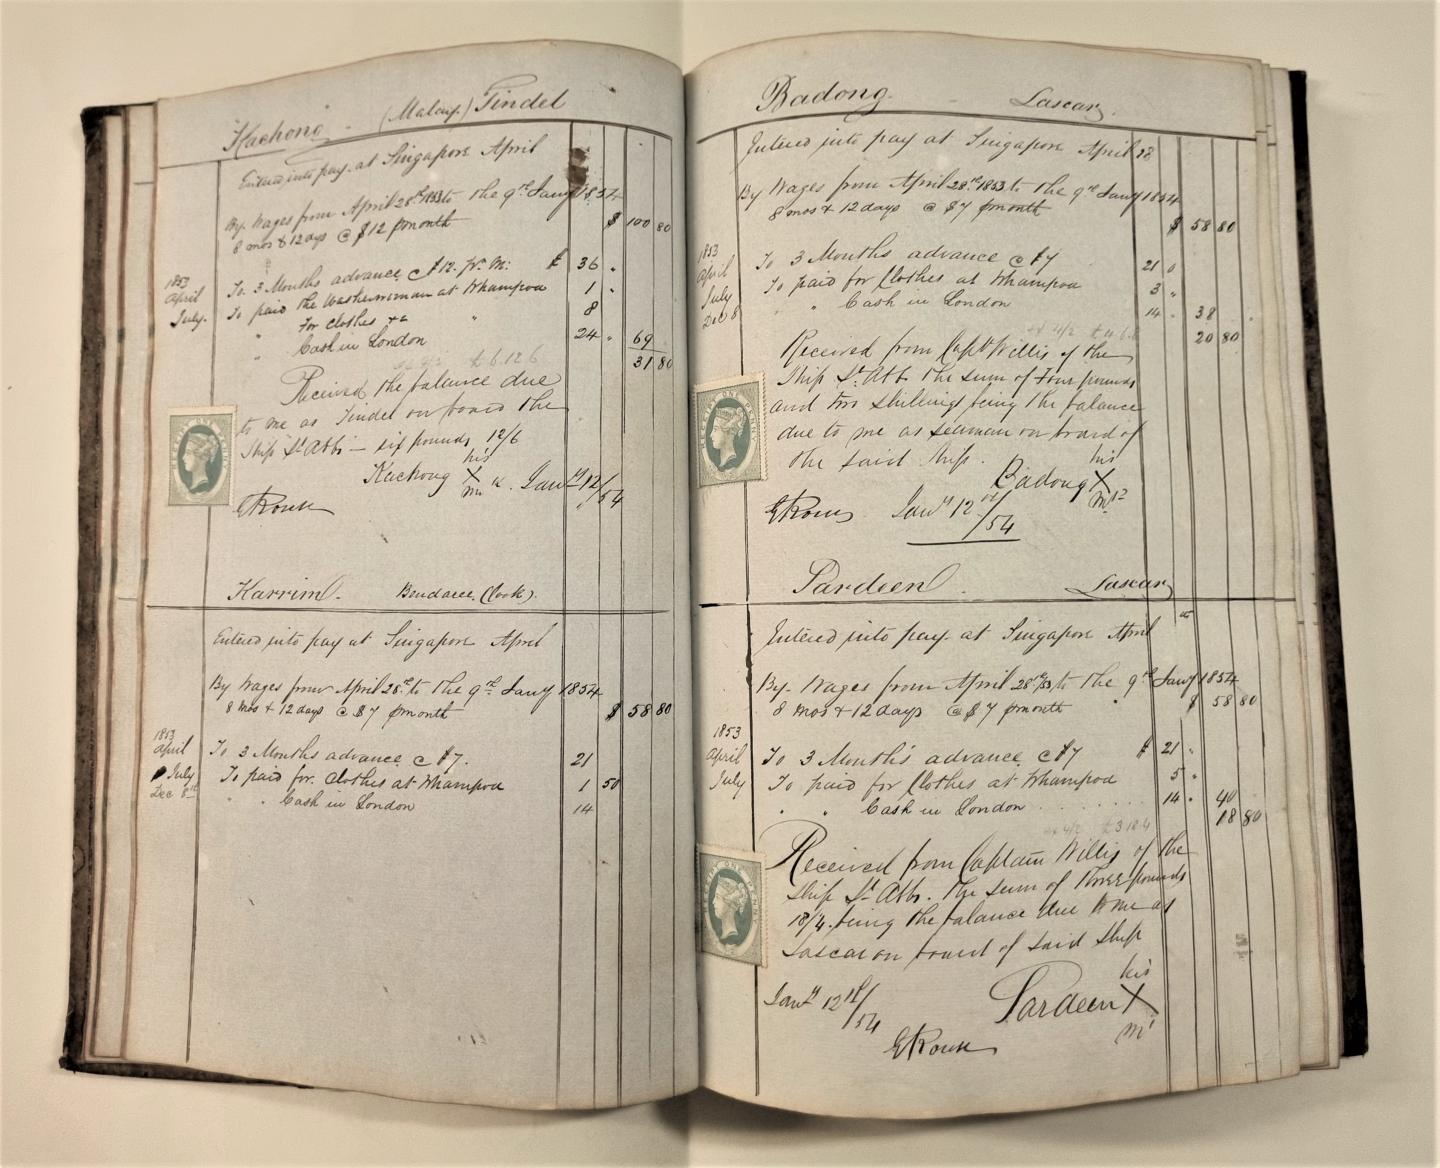 Kachong. (Malay.) Tindel
Entered into pay at Singapore April
By Wages from April 28th 1853 to the 9th Jany 1854
8 mos & 12 days @ $12 p month $ 100 80
1853
April To 3 Months advance @ $12. pr. M: $ 36 "
July. To paid the Washerwoman at Whampoa 1 "
For clothes &c " 8
" Cash in London 24 " 69
31 80
4/2 £6.12.6
Received the balance due
to me as Tindel on board the
Ship St. Abbs — six pounds 12/6
his
Kachong X Jany 12/54
mk
E Rouse
Karrim. Bendaree. (Cook).
Entered into pay at Singapore April
By Wages from April 28th to the 9th Jany 1854
8 mos & 12 days @ $7 p month $ 58 80
1853
April To 3 Months advance @ $7. 21
July To paid for clothes at Whampoa 1 50
Dec 8th " " Cash in London 14
Badong. Lascar.
Entered into pay at Singapore April 28
By Wages from April 28th 1853 to the 9th Jany 1854
8 mos & 12 days @ $7 p month $ 58 80
1853
April To 3 Months advance @ $7 21 0
July To paid for Clothes at Whampoa 3 "
Dec 8 " Cash in London 14 " 38
20 80
4/2
Received from Captn Willis of the
Ship St. Abbs the sum of Four pounds
and two shillings being the balance
due to me as seaman on board of
the said ship.
his
Badong X
E Rouse Jany 12th/54
Pardeen. Lascar
Entered into pay at Singapore April
By Wages from April 28th/53 to the 9th Jany 1854
8 mos & 12 days @ $7 p month $ 58 80
1853
April To 3 Month's advance @ $7 $ 21 "
July To paid for Clothes at Whampoa 5 "
" " Cash in London 14 " 40
18 80
4/2 £3.18.4
Received from Captain Willis of the
Ship St Abbs. the sum of three pounds
18/4. being the balance due to me as
Lascar on board of said ship
his
Jany 12th/54 Pardeen X
E Rouse